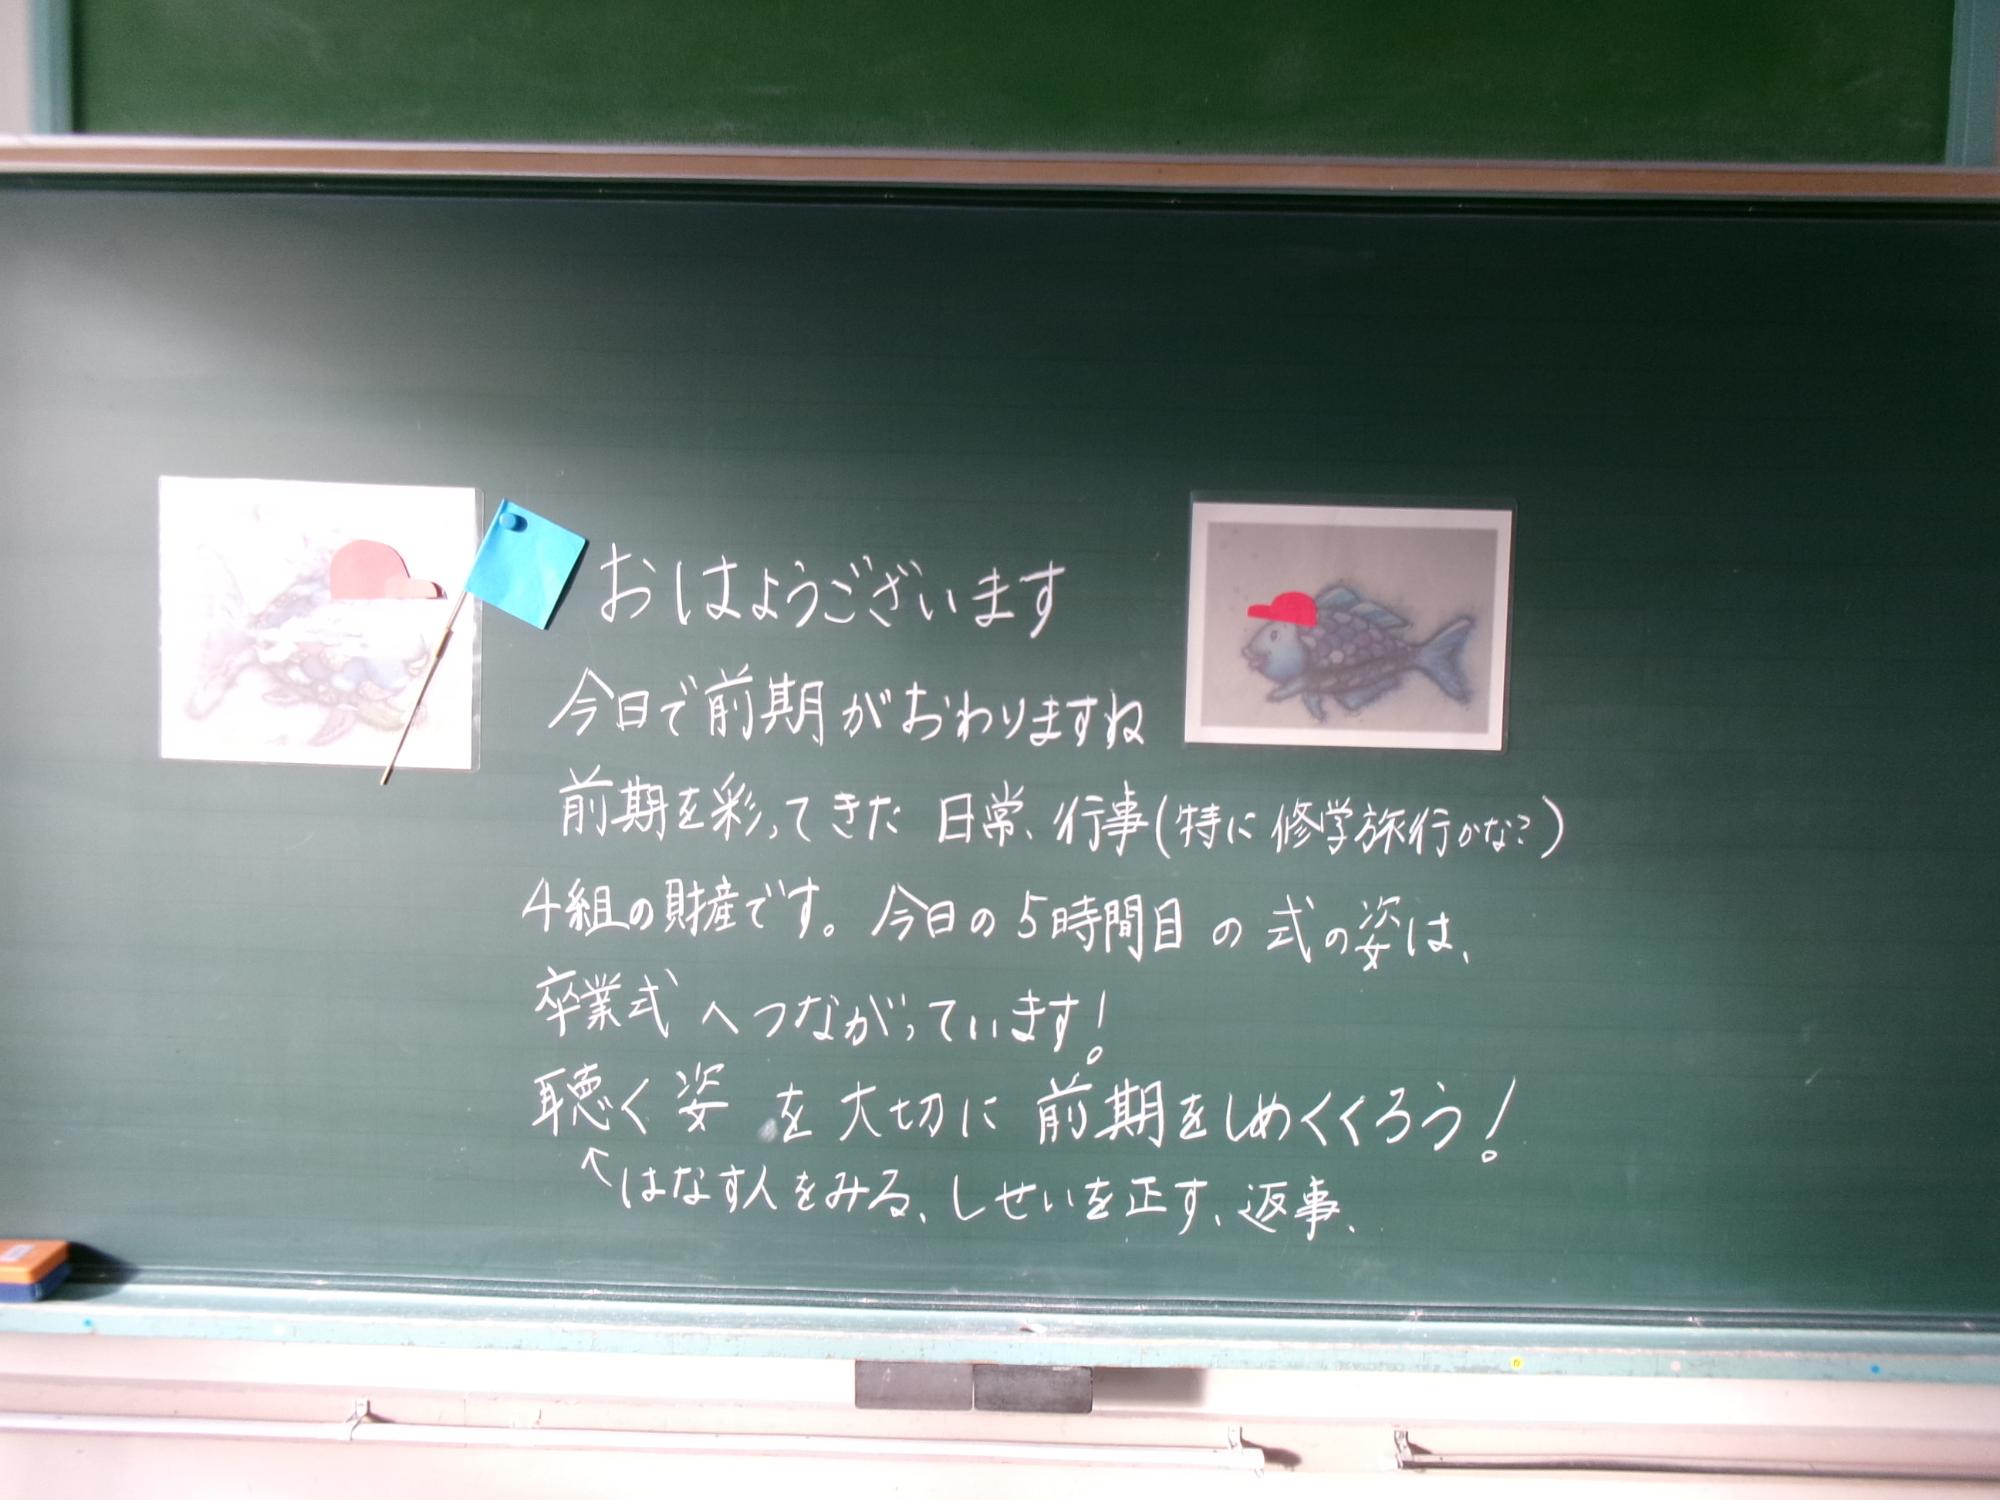 おはようございます
今日で前期がおわりますね
前期を彩ってきた日常、行事(特に修学旅行かな?)
4組の財産です。今日の5時間目の式の姿は、
卒業式へつながっています!
聴く姿を大切に前期をしめくくろう!
↑はなす人をみる、しせいを正す、返事、